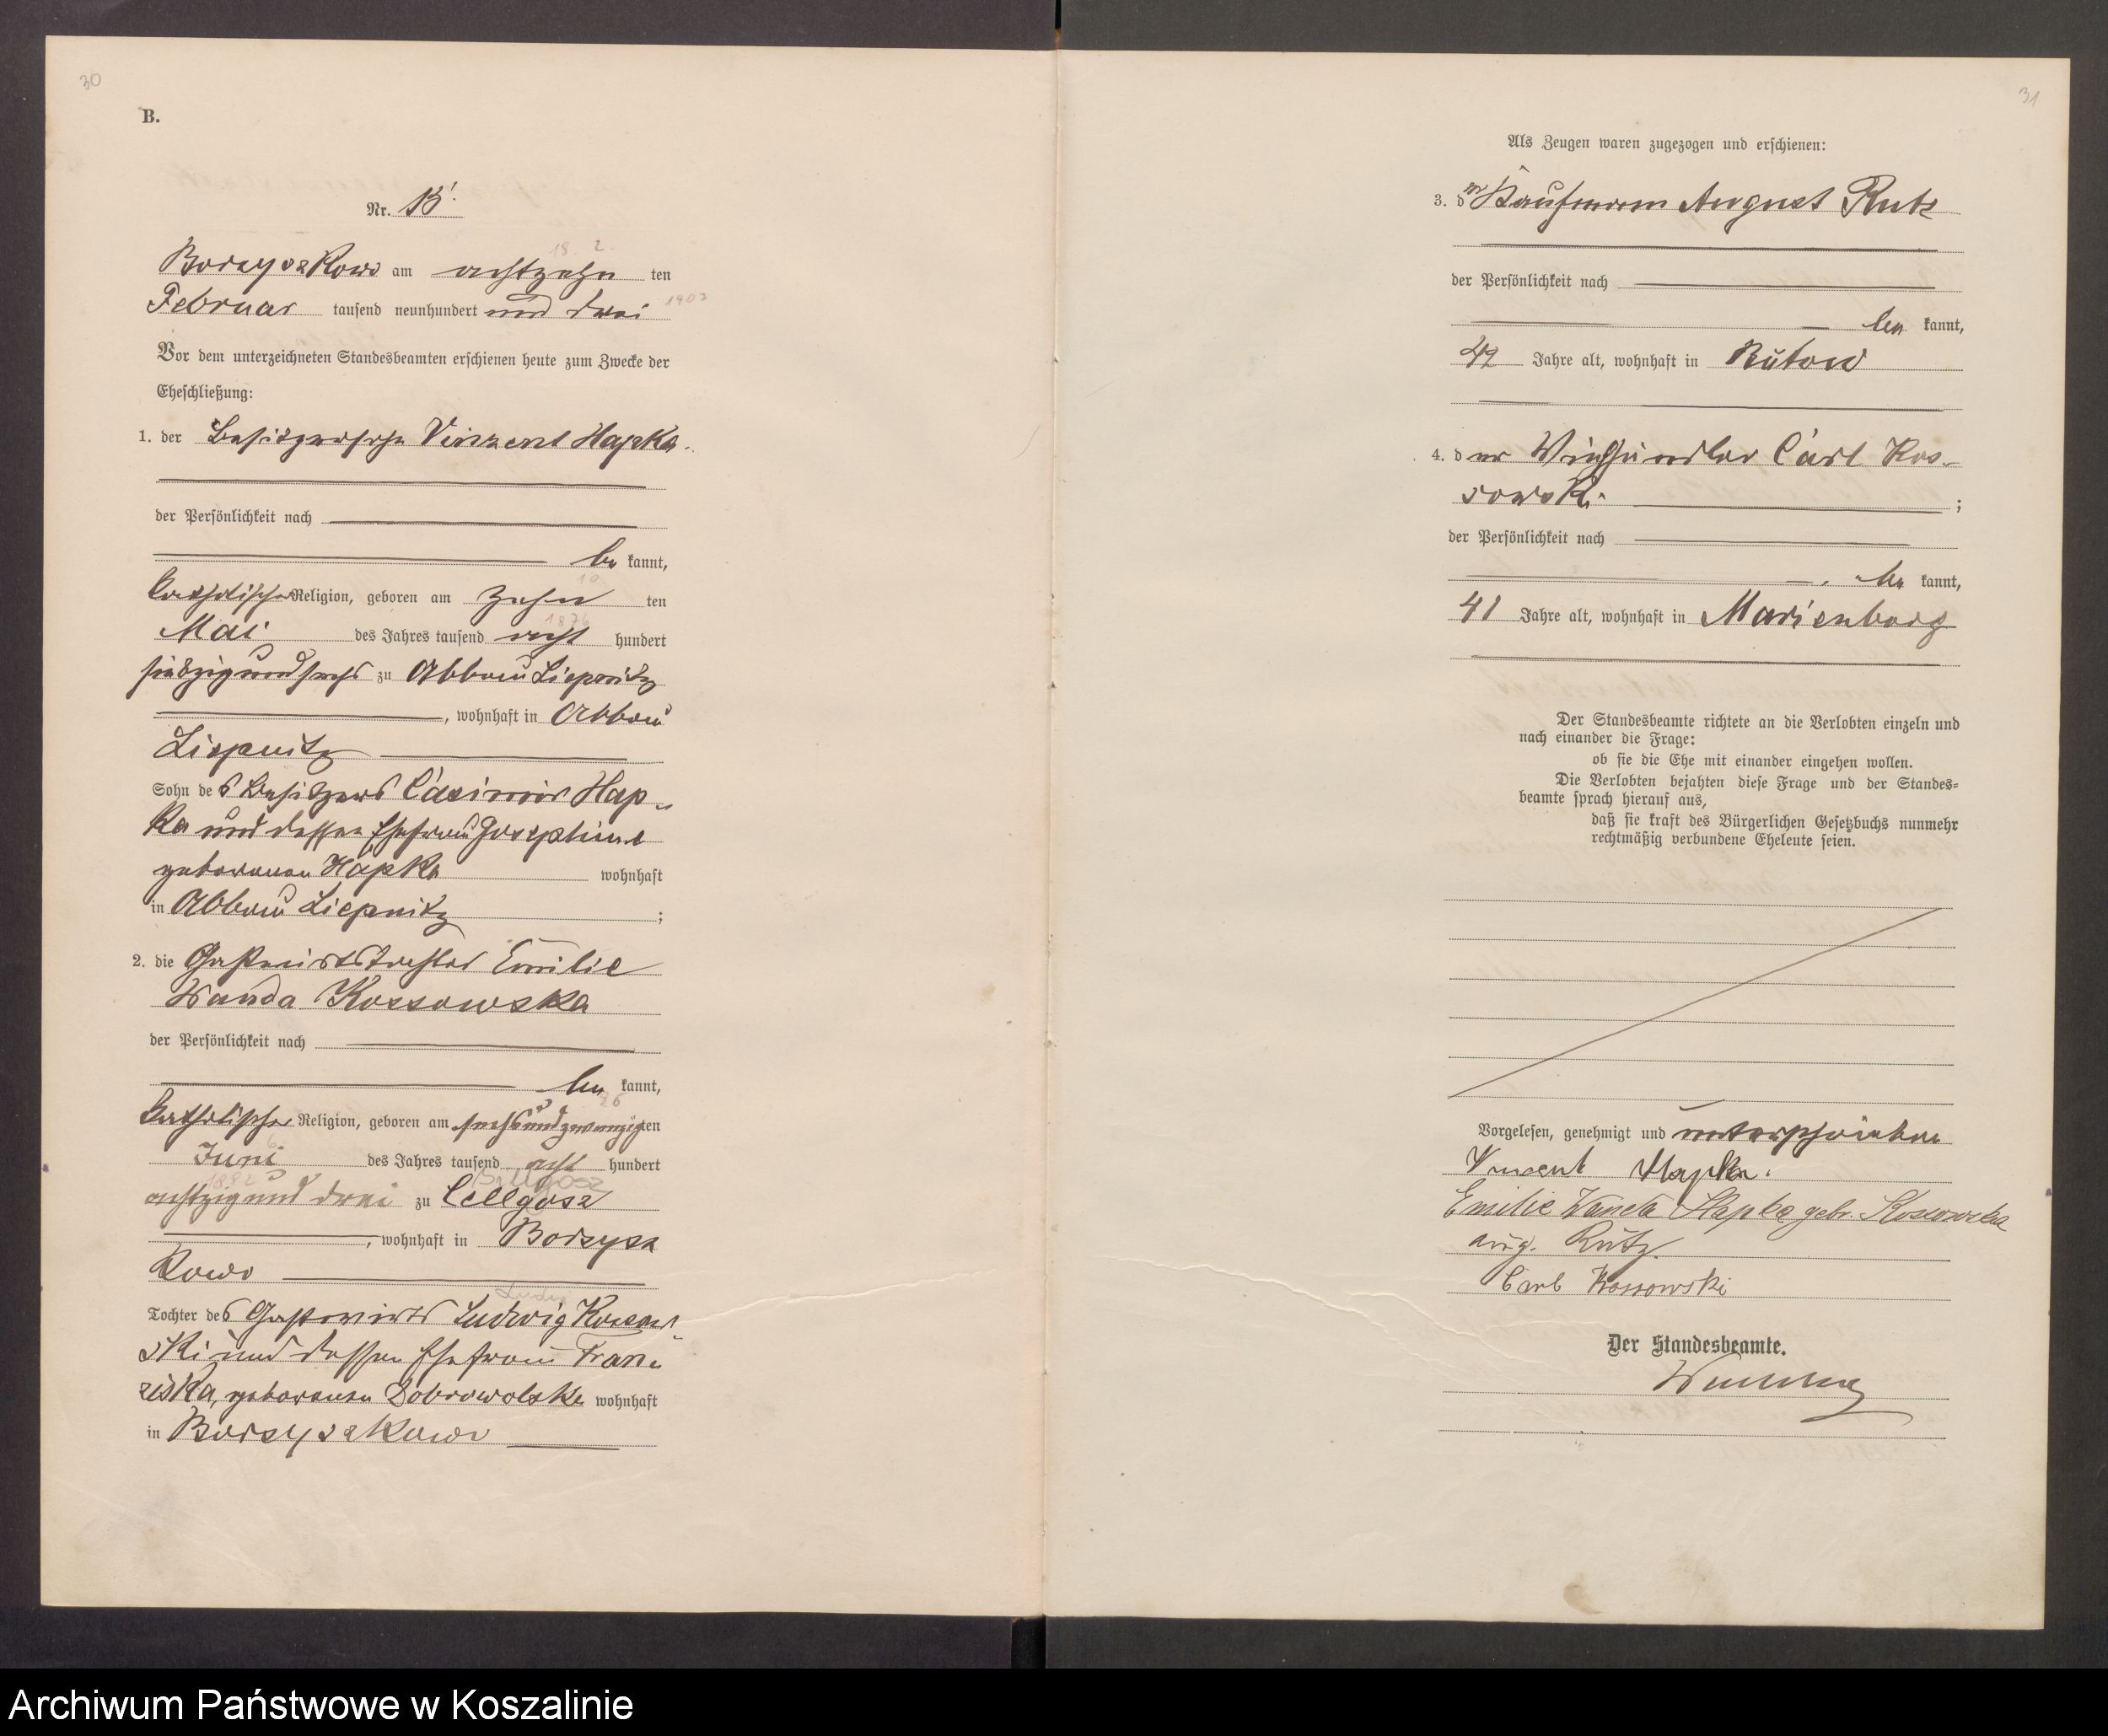 30
B.
Nr. 13.
18. 2.
Borzyszkowo am achtzehn ten
Februar tausend neunhundert und drei 1903
Vor dem unterzeichneten Standesbeamten erschienen heute zum Zwecke der
Eheschließung:
1. der Besitzersohn Vinzent Hapka
der Persönlichkeit nach
be kannt,
10
katholischer Religion, geboren am zehn ten
1876
Mai des Jahres tausend acht hundert
siebzig und sechs zu Abbau Liepnitz
, wohnhaft in Abbau
Liepnitz
Sohn des Besitzers Casimir Hap-
ka und dessen Ehefrau Josephine
geborenen Hapka wohnhaft
in Abbau Liepnitz ;
2. die Gastwirtstochter Emilie
Wanda Kossowska
der Persönlichkeit nach
be kannt,
26
katholischer Religion, geboren am sechsundzwanzigten
6
Juni des Jahres tausend acht hundert
achtzig und drei zu Cellgosz
, wohnhaft in Borzysz
kowo
Ludw
Tochter des Gastwirts Ludwig Kossow-
ski und dessen Ehefrau Fran-
ziska, geborenen Dobrowolska wohnhaft
in Borzyszkowo
31
Als Zeugen waren zugezogen und erschienen:
3. der Kaufmann August Rutz
der Persönlichkeit nach
be kannt,
42 Jahre alt, wohnhaft in Bütow
4. der Viehhändler Carl Kos-
sowski ;
der Persönlichkeit nach
be kannt,
41 Jahre alt, wohnhaft in Marienburg
Der Standesbeamte richtete an die Verlobten einzeln und
nach einander die Frage:
ob sie die Ehe mit einander eingehen wollen.
Die Verlobten bejahten diese Frage und der Standes=
beamte sprach hierauf aus,
daß sie kraft des Bürgerlichen Gesetzbuchs nunmehr
rechtmäßig verbundene Eheleute seien.
Vorgelesen, genehmigt und unterschrieben
Vincent Hapka.
Emilie Wanda Hapka gebr. Kosowska
Aug. Rutz.
Carl Kossowski
Der Standesbeamte.
Archiwum Państwowe w Koszalinie